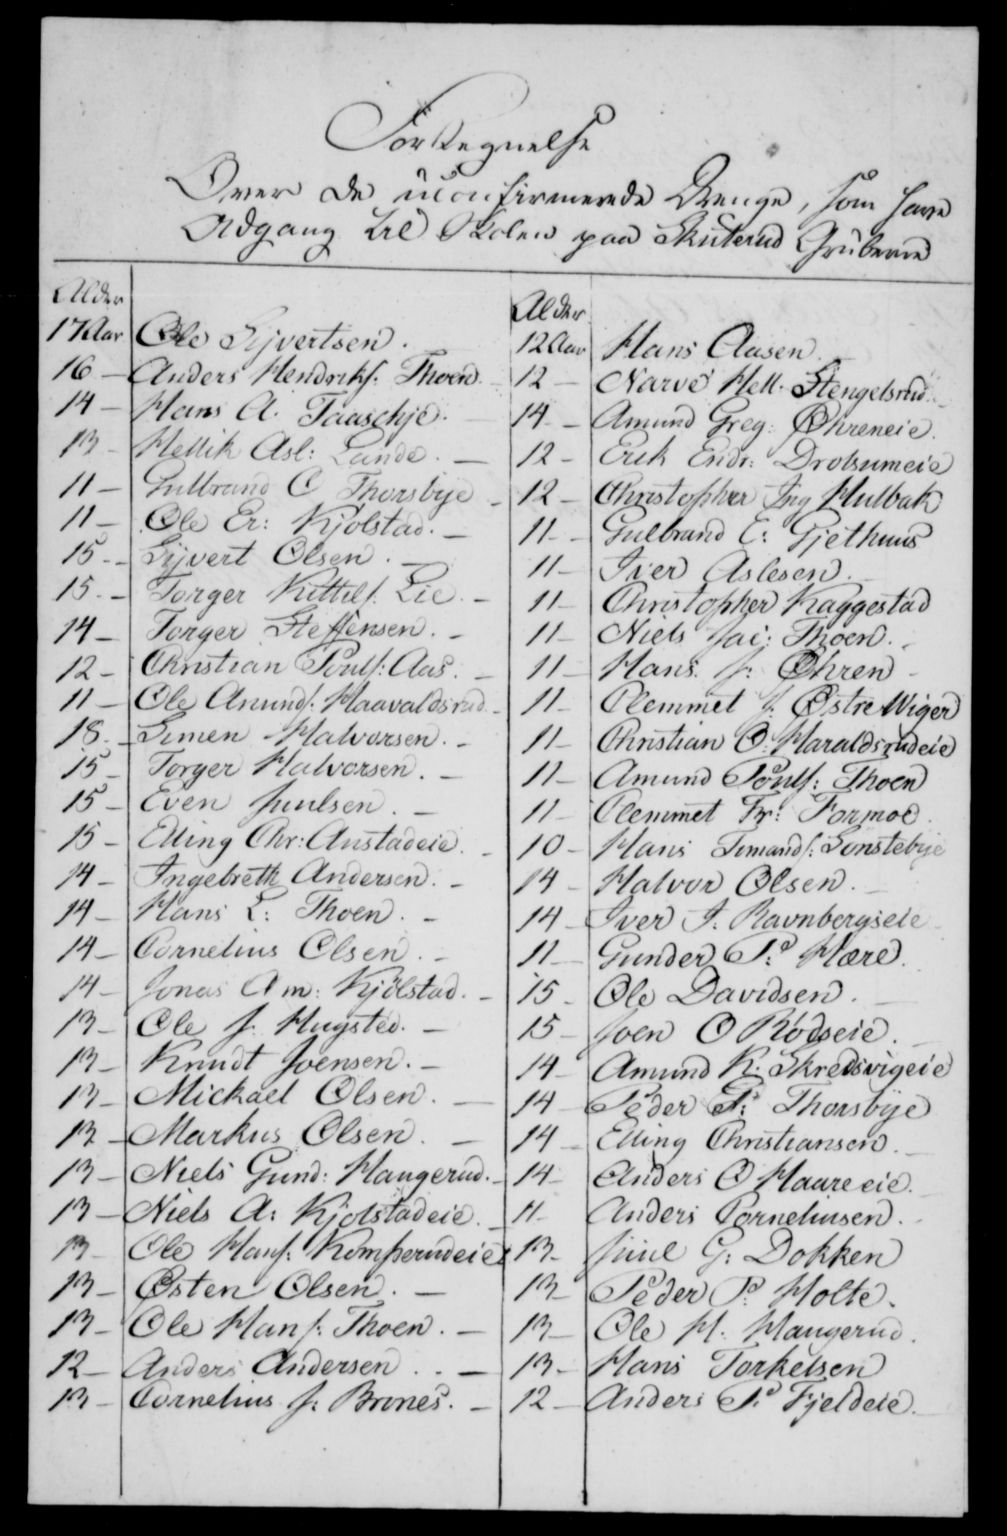 Fortegnelse
Over de uconfirmerede Drenge, som have
Adgang til Skolen paa Skuterud Gruberne
Alder
17 Aar Ole Syvertsen.
16 – Anders Hendriks: Thoen.
14 – Hans A. Taaschje.
13 – Hellik Asl: Lande. –
11 – Gulbrand C Thorsbye –
11 – Ole Er: Kjölstad. –
15 – Syvert Olsen. –
15. – Torger Kittils: Lie. –
14 – Torger Steffensen. –
12 – Christian Pouls: Aas. –
11 – Ole Amunds: Haavaldsrud. –
18. – Simen Halvorsen. –
15 – Torger Halvorsen. –
15 – Even Juulsen. –
15 – Elling Chr: Anstadeie. –
14 – Ingebreth Andersen. –
14 – Hans L: Thoen. –
14 – Cornelius Olsen. –
14 – Jonas Am: Kjölstad. –
13 – Ole J. Hugsted. –
13 – Knudt Joensen. –
13 – Mickael Olsen. –
13 – Markus Olsen. –
13 – Niels Gund: Haugerud. –
13 – Niels A: Kjølstadeie. –
13 – Ole Hans: Komperudeie
13 – Østen Olsen. –
13 – Ole Hans: Thoen. –
12 – Anders Andersen . . –
13 – Cornelius J: Brones. –
Alder
12 Aar Hans Aasen. –
12 – Narve Hell. Stengelsrud.
14 – Amund Greg: Øhreneie.
12 – Erik Endr: Drolsumeie
12 – Christopher Ing Hulbak
11 – Gulbrand E: Gjethuus
11 – Iver Aslesen.
11 – Christopher Kaggestad
11 – Niels Jac: Thoen.
11 – Hans J: Øhren –
11 – Clemmet J. Østre Wiger
11 – Christian O. Haraldsrudeie
11 – Amund Pouls: Thoen
11 – Clemmet Fr: Formoe.
10 – Hans Simands: Sønstebye
14 – Halvor Olsen. –
14 – Iver I. Ravnbergseie
11 – Gunder P: Hære.
15 – Ole Davidsen. –
15 – Joen O Rødseie. –
14 – Amund K. Skredsvigeie
14 – Peder P: Thorsbye
14 – Elling Christiansen. –
14 – Anders O Haareeie.
11 – Anders Corneliusen. –
13 – Juul G: Dokken
13 – Peder P. Holte.
13 – Ole H. Haugerud.
13 – Hans Torkelsen
12 – Anders P. Fjeldeie. –